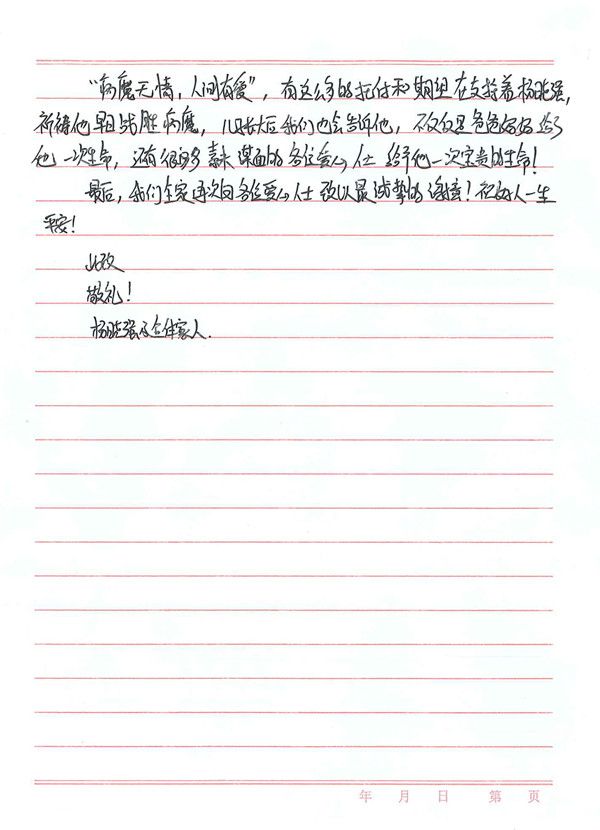 “病魔无情，人间有爱”，有这么多的托付和期望在支持着杨晓强，
祈祷他早日战胜病魔，儿子长大后我们也会告诉他，不仅仅是爸爸妈妈给了
他一次生命，还有很多素未谋面的各位爱心人士给予他一次宝贵的生命！
最后，我们全家再次向各位爱心人士致以最诚挚的谢意！祝好人一生
平安！
此致
敬礼！
杨晓强及全体家人.
年 月 日 第 页